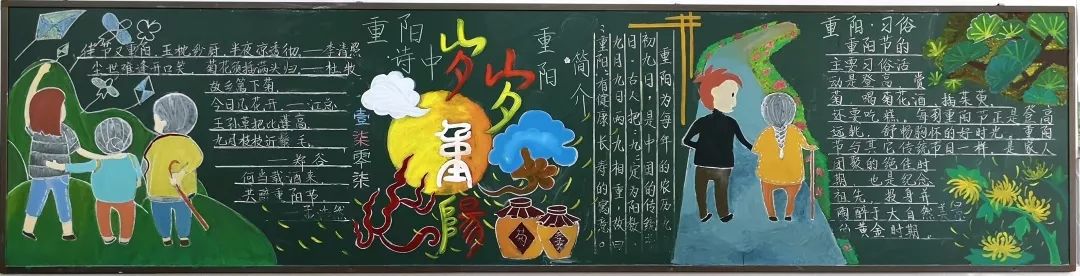 重阳诗中
佳节又重阳，玉枕纱厨，半夜凉透彻。——李清照
尘世难逢开口笑，菊花须插满头归。——杜牧
故乡篱下菊，
今日几花开。——江总
王孙莫把比蓬蒿，
九日枝枝近鬓毛。
——郑谷
何当载酒来，
共醉重阳节。
——孟浩然
壹柒零柒
岁岁重陽
菊
重阳简介
重阳为每年的农历九
初九日，是中国的传统
日。古人把：九：定为阳数，
九月九日两九相重，故曰
：重阳；有健康长寿的寓意。
重阳·习俗
重阳节的
主要习俗活
动是登高，赏
菊，喝菊花酒，插茱萸，
还要吃糕，每到重阳节正是登高
远眺，舒畅胸怀的好时光。重阳
节与其它传统节日一样，是家人
团聚的绝佳时
期，也是纪念
祖先，投身并
陶醉于大自然美景
的黄金时期。